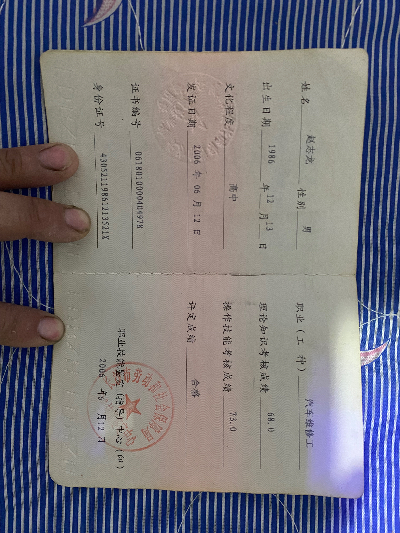 姓名 赵志龙 性别 男
出生日期 1986 年 12 月 13 日
文化程度 高中
发证日期 2006 年 06 月 12 日
证书编号 0618010000404978
身份证号
职业(工种) 汽车维修工
理论知识考核成绩 68.0
操作技能考核成绩 73.0
评定成绩 合格
职业技能鉴定(指导)中心(印)
2006 年 6 月 12 日